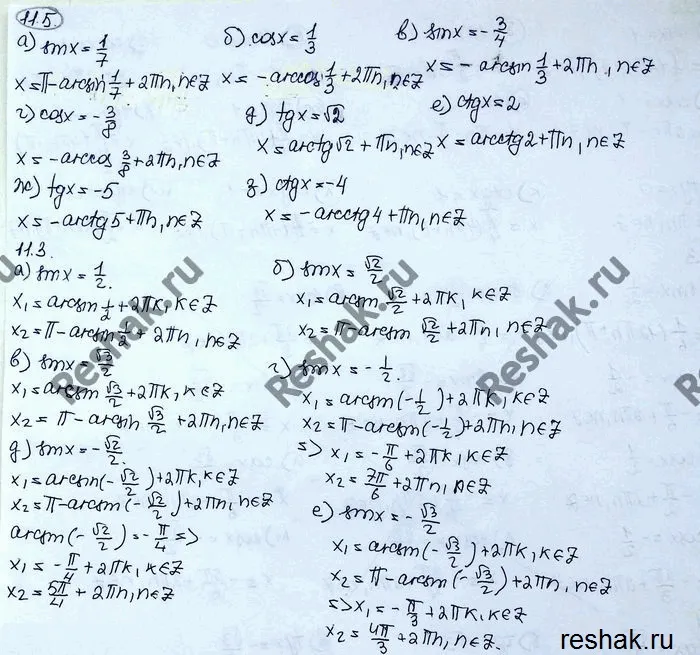 11.5
а) sinx=1/7
x=π-arcsin 1/7+2πn, n∈Z
б) cosx=1/3
x=-arccos 1/3+2πn, n∈Z
в) sinx=-3/4
x=-arcsin 1/3+2πn, n∈Z
г) cosx=-3/8
x=-arccos 3/8+2πn, n∈Z
д) tgx=√2
x=arctg√2+πn, n∈Z
е) ctgx=2
x=arcctg2+πn, n∈Z
ж) tgx=-5
x=-arctg5+πn, n∈Z
з) ctgx=-4
x=-arcctg4+πn, n∈Z
11.3.
а) sinx=1/2.
x₁=arcsin 1/2+2πk, k∈Z
x₂=π-arcsin 1/2+2πn, n∈Z
б) sinx=√2/2
x₁=arcsin √2/2+2πk, k∈Z
x₂=π-arcsin √2/2+2πn, n∈Z
в) sinx=√3/2
x₁=arcsin √3/2+2πk, k∈Z
x₂=π-arcsin √3/2+2πn, n∈Z
г) sinx=-1/2.
x₁=arcsin(-1/2)+2πk, k∈Z
x₂=π-arcsin(-1/2)+2πn, n∈Z
=> x₁=-π/6+2πk, k∈Z
x₂=7π/6+2πn, n∈Z
д) sinx=-√2/2.
x₁=arcsin(-√2/2)+2πk, k∈Z
x₂=π-arcsin(-√2/2)+2πn, n∈Z
arcsin(-√2/2)=-π/4=>
x₁=-π/4+2πk, k∈Z
x₂=5π/4+2πn, n∈Z
е) sinx=-√3/2
x₁=arcsin(-√3/2)+2πk, k∈Z
x₂=π-arcsin(-√3/2)+2πn, n∈Z
=>x₁=-π/3+2πk, k∈Z
x₂=4π/3+2πn, n∈Z.
Reshak.ru
Reshak.ru
Reshak.ru
reshak.ru